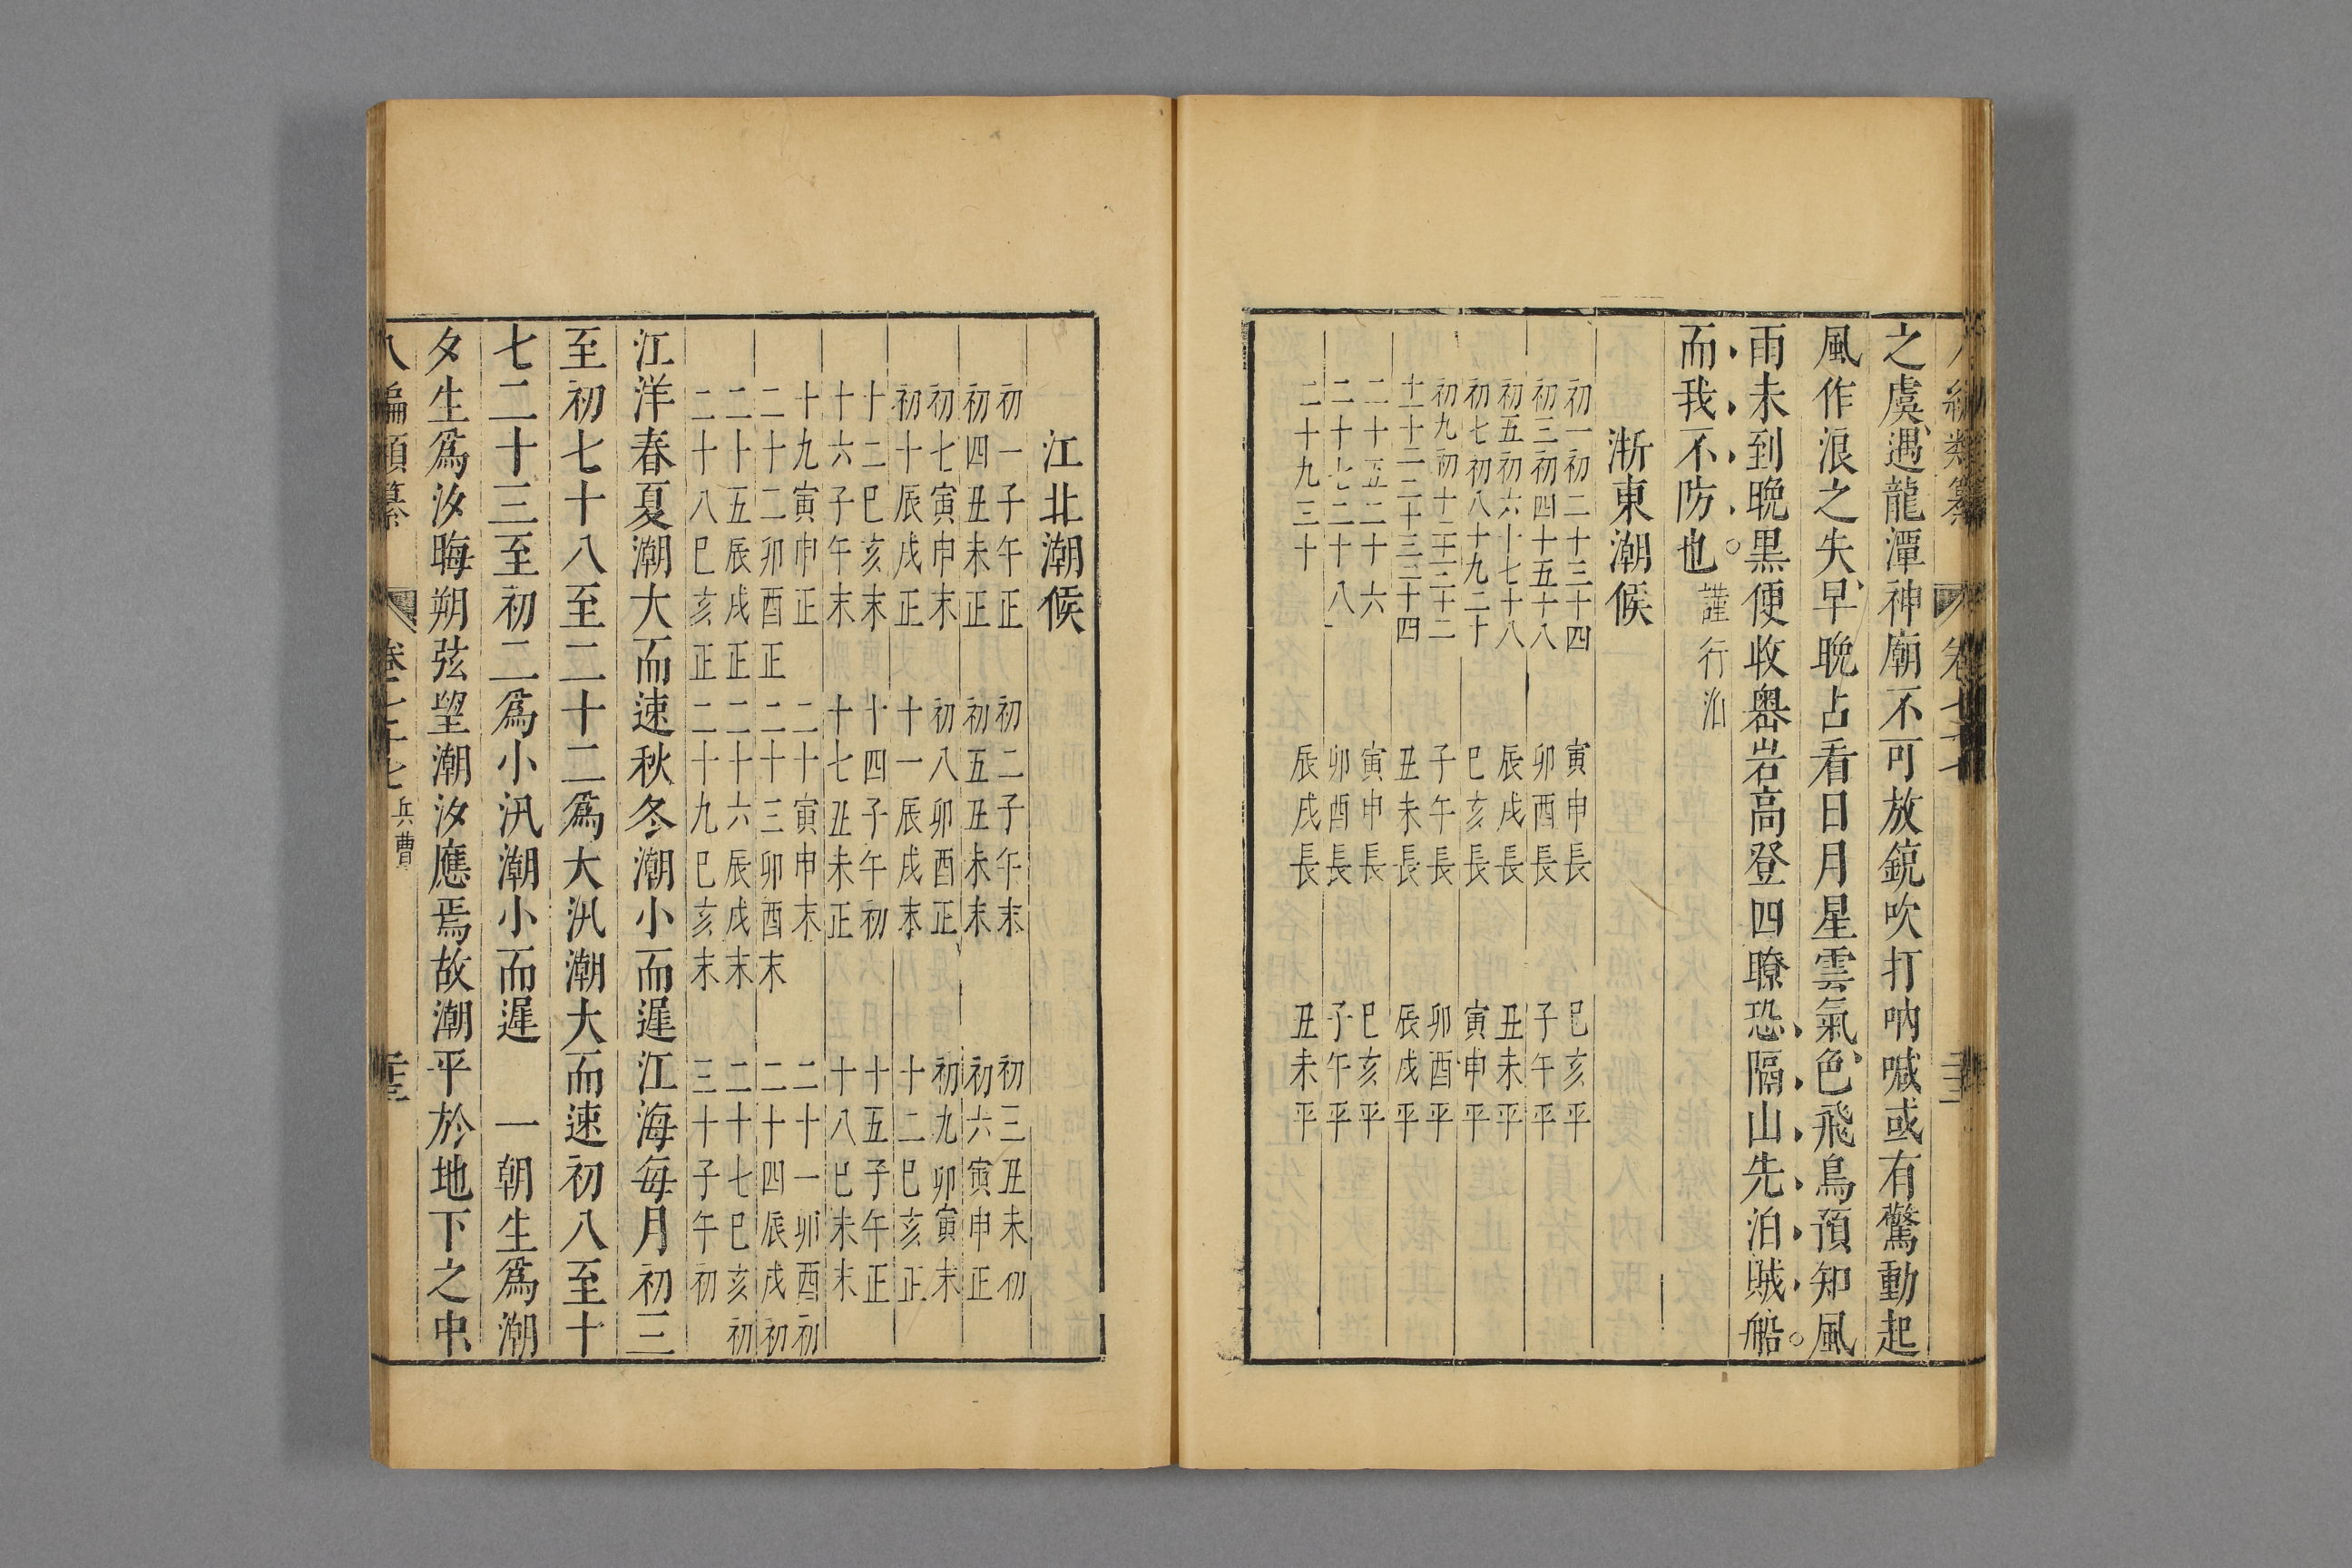 之虞遇龍潭神廟不可放銃吹打吶喊或有驚動起
風作浪之失早晚占看日月星雲氣色飛鳥預知風
雨未到晚黒便收嶴岩高登四瞭恐隔山先泊賊船
而我不防也 謹行泊
浙東潮候
初一初二十三十四 寅申長 巳亥平
初三初四十五十八 卯酉長 子午平
初五初六十七十八 辰戌長 丑未平
初七初八十九二十 巳亥長 寅申平
初九初十二二 子午長 卯酉平
十二十三二十四 丑未長 辰戌平
二十五二十六 寅申長 巳亥平
二十七二十八 卯酉長 子午平
二十九三十 辰戌長 丑未平
江北潮候
初一子午正 初二子午末 初三丑未初
初四丑未正 初五丑未末 初六寅申正
初七寅申末 初八卯酉正 初九卯寅末
初十辰戌正 十一辰戌末 十二巳亥正
十二巳亥末 十四子午初 十五子午正
十六子午末 十七丑未正 十八巳未末
十九寅申正 二十寅申末 二十一卯酉初
二十二卯酉正 二十三卯酉末 二十四辰戌初
二十五辰戌正 二十六辰戌末 二十七巳亥初
二十八巳亥正 二十九巳亥末 三十子午初
江洋春夏潮大而速秋冬潮小而遲江海每月初三
至初七十八至二十二爲大汛潮大而速初八至十
七二十三至初二爲小汛潮小而遲 一朝生爲潮
夕生爲汐晦朔弦望潮汐應焉故潮平於地下之中
八編類纂 卷七十七 兵曹